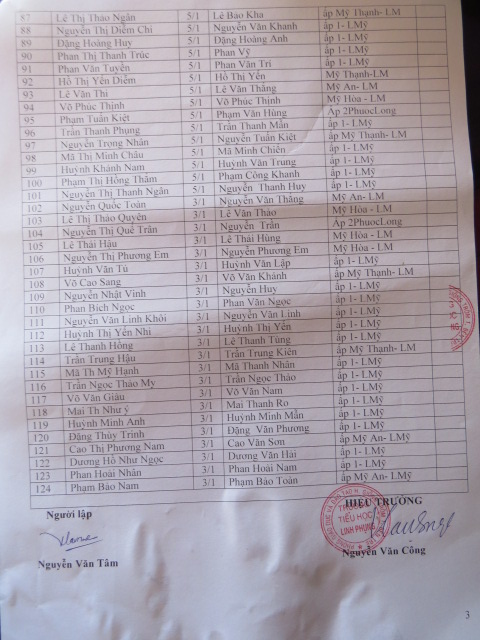 87 Lê Thị Thảo Ngân 5/1 Lê Bảo Kha ấp Mỹ Thạnh- LM
88 Nguyễn Thị Diễm Chi 5/1 Nguyễn Văn Khanh ấp 1- LMỹ
89 Đặng Hoàng Huy 5/1 Đặng Hoàng Anh ấp 1- LMỹ
90 Phan Thị Thanh Trúc 5/1 Phan Vỹ ấp 1- LMỹ
91 Phan Văn Tuyền 5/1 Phan Văn Trí ấp 1- LMỹ
92 Hồ Thị Yến Diễm 5/1 Hồ Thị Yến Mỹ Thạnh-LM
93 Lê Văn Thi 5/1 Lê Văn Thăng Mỹ An- LM
94 Võ Phúc Thịnh 5/1 Võ Phúc Thịnh Mỹ Hòa - LM
95 Phạm Tuấn Kiệt 5/1 Phạm Văn Hùng Ấp 2PhuocLong
96 Trần Thanh Phụng 5/1 Trần Thanh Mẫn ấp 1- LMỹ
97 Nguyễn Trọng Nhân 5/1 Nguyễn Tuấn Kiệt ấp Mỹ Thạnh- LM
98 Mã Thị Minh Châu 5/1 Mã Minh Chiến ấp 1- LMỹ
99 Huỳnh Khánh Nam 5/1 Huỳnh Văn Trung ấp 1- LMỹ
100 Phạm Thị Hồng Thắm 5/1 Phạm Công Khanh ấp 1- LMỹ
101 Nguyễn Thị Thanh Ngân 5/1 Nguyễn Thanh Huy ấp 1- LMỹ
102 Nguyễn Quốc Toàn 3/1 Nguyễn Văn Thắng Mỹ An- LM
103 Lê Thị Thảo Quyên 3/1 Lê Văn Thảo Mỹ Hòa - LM
104 Nguyễn Thị Quế Trân 3/1 Nguyễn Trần Ấp 2PhuocLong
105 Lê Thái Hậu 3/1 Lê Thái Hùng Mỹ Hòa - LM
106 Nguyễn Thị Phương Em 3/1 Nguyễn Phương Em Mỹ Hòa - LM
107 Huỳnh Văn Tú 3/1 Huỳnh Văn Lập ấp 1- LMỹ
108 Võ Cao Sang 3/1 Võ Văn Khánh ấp Mỹ Thạnh- LM
109 Nguyễn Nhật Vinh 3/1 Nguyễn Huy ấp 1- LMỹ
110 Phan Bích Ngọc 3/1 Phan Văn Ngọc ấp 1- LMỹ
111 Nguyễn Văn Linh Khôi 3/1 Nguyễn Văn Linh ấp 1- LMỹ
112 Huỳnh Thị Yến Nhi 3/1 Huỳnh Thị Yến ấp 1- LMỹ
113 Lê Thanh Hồng 3/1 Lê Thanh Tùng ấp 1- LMỹ
114 Trần Trung Hậu 3/1 Trần Trung Kiên ấp Mỹ Thạnh- LM
115 Mã Th Mỹ Hạnh 3/1 Mã Thanh Nhân ấp 1- LMỹ
116 Trần Ngọc Thảo My 3/1 Trần Ngọc Thảo ấp 1- LMỹ
117 Võ Văn Giàu 3/1 Võ Văn Nam ấp 1- LMỹ
118 Mai Th Như ý 3/1 Mai Thanh Ro ấp 1- LMỹ
119 Huỳnh Minh Anh 3/1 Huỳnh Minh Mẫn ấp 1- LMỹ
120 Đặng Thùy Trinh 3/1 Đặng Văn Phương ấp 1- LMỹ
121 Cao Thị Phương Nam 3/1 Cao Văn Sơn ấp Mỹ An- LMỹ
122 Dương Hồ Như Ngọc 3/1 Dương Văn Hải ấp 1- LMỹ
123 Phan Hoài Nhân 3/1 Phan Hoài Nam ấp 1- LMỹ
124 Phạm Bảo Nam 3/1 Phạm Bảo Toàn ấp Mỹ An- LMỹ
Người lập HIỆU TRƯỞNG
TRƯỜNG
TIỂU HỌC
LINH PHỤNG
Nguyễn Văn Tâm Nguyễn Văn Công
3